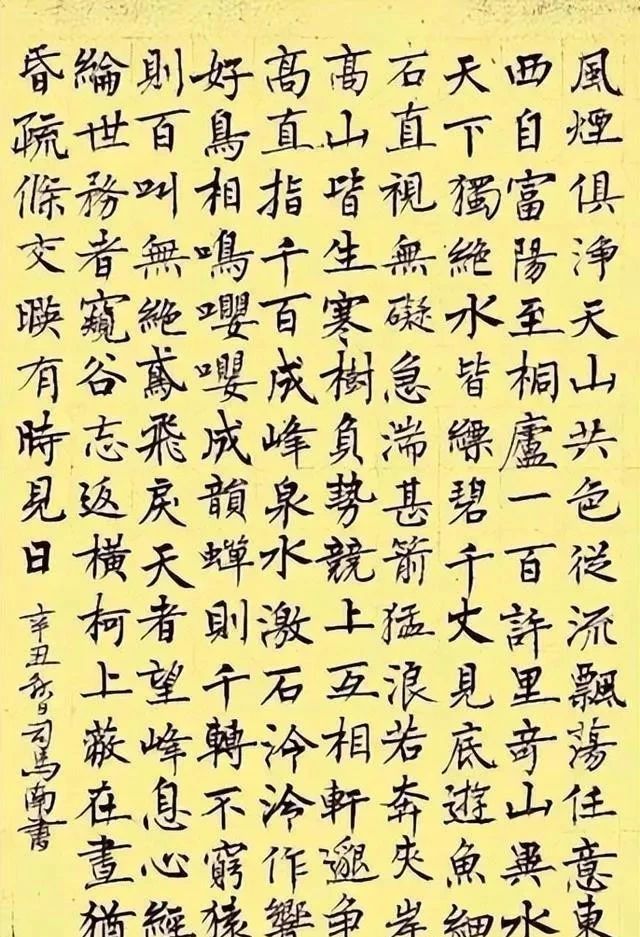 風煙俱淨天山共色從流飄蕩任意東
西自富陽至桐廬一百許里奇山異水
天下獨絶水皆縹碧千丈見底遊魚細
石直視無礙急湍甚箭猛浪若奔夾岸
高山皆生寒樹負勢競上互相軒邈争
高直指千百成峰泉水激石泠泠作響
好鳥相鳴嚶嚶成韻蟬則千轉不窮猿
則百叫無絶鳶飛戾天者望峰息心經
綸世務者窺谷志返橫柯上蔽在晝猶
昏疏條交暎有時見日
辛丑 司馬南書